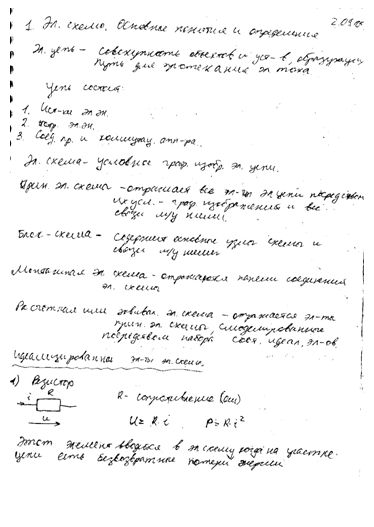 2.09.
1 Эл. схема. Основные понятия и определения
Эл. цепь – совокупность объектов и уст-в, образующих
путь для протекания эл тока
Цепь состоит:
1. Ист-ки эл.эн.
2. эл.эн.
3. Соед. пр. и коммутац. апп-ра.
Эл. схема – условное граф. изобр. эл. цепи.
Прин. эл. схемы – отражает все эл-ты эл цепи посредством
их усл. – граф. изображений и все
связи м/у ними.
Блок-схема – содержит основные узлы схемы и
связи м/у ними
Монтажная эл схема – отражаются соединения
эл. схемы
Расчетная или эквивал. эл. схема – отражается эл-та
прин. эл. схемы, смоделированное
посредством набора идеал. эл-ов
Идеализированные эл-ты эл. схемы.
1) Резистор
R
i
u
R – сопротивление (ом)
U = R i , P = R i²
Этот элемент вводится в эл схему когда на участке
цепи есть безвозвратные потери энергии